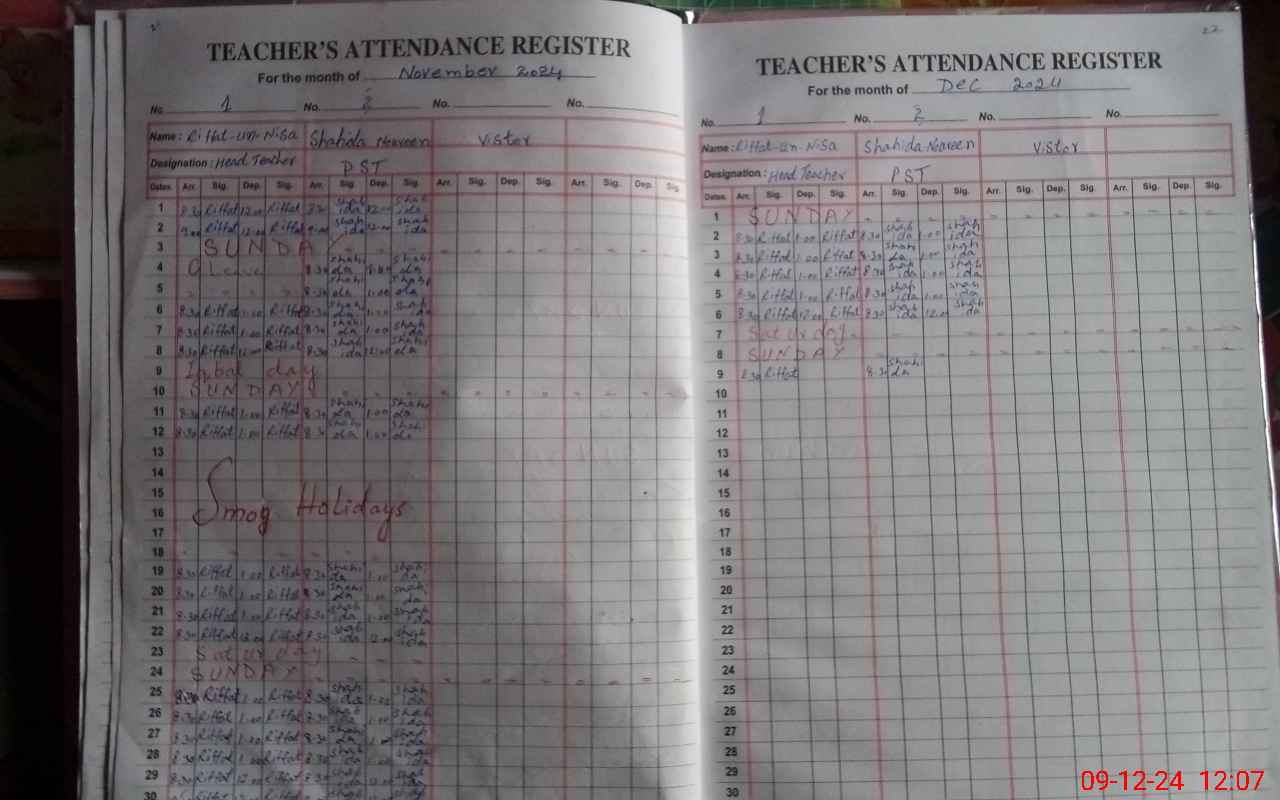 TEACHER'S ATTENDANCE REGISTER
For the month of November 2024
No. 1 No. 2 No. No.
Name: Riffat-un-Nisa Shahida Noureen Vistor
Designation: Head Teacher PST
Dates. Arr. Sig. Dep. Sig. Arr. Sig. Dep. Sig. Arr. Sig. Dep. Sig. Arr. Sig. Dep. Sig.
1 8:30 Riffat 12:00 Riffat 8:30 Shahida 12:00 Shahida
2 9:00 Riffat 12:00 Riffat 9:00 Shahida 12:00 Shahida
3 SUNDAY
4 Leave 8:30 Shahida Shahida
5 8:30 Shahida 1:00 Shahida
6 8:30 Riffat 1:00 Riffat 8:30 Shahida 1:00 Shahida
7 8:30 Riffat 1:00 Riffat 8:30 Shahida 1:00 Shahida
8 8:30 Riffat 12:00 Riffat 8:30 Shahida 12:00 Shahida
9 Iqbal day
10 SUNDAY
11 8:30 Riffat 1:00 Riffat 8:30 Shahida 1:00 Shahida
12 8:30 Riffat 1:00 Riffat 8:30 Shahida 1:00 Shahida
13
14
15
16 Smog Holidays
17
18
19 8:30 Riffat 1:00 Riffat 8:30 Shahida 1:00 Shahida
20 8:30 Riffat 1:00 Riffat 8:30 Shahida 1:00 Shahida
21 8:30 Riffat 1:00 Riffat 8:30 Shahida 1:00 Shahida
22 8:30 Riffat 12:00 Riffat 8:30 Shahida 12:00 Shahida
23 Saturday
24 SUNDAY
25 8:30 Riffat 1:00 Riffat 8:30 Shahida 1:00 Shahida
26 8:30 Riffat 1:00 Riffat 8:30 Shahida 1:00 Shahida
27 8:30 Riffat 1:00 Riffat 8:30 Shahida 1:00 Shahida
28 8:30 Riffat 1:00 Riffat 8:30 Shahida 1:00 Shahida
29 8:30 Riffat 12:00 Riffat 8:30 Shahida 12:00 Shahida
30
22
TEACHER'S ATTENDANCE REGISTER
For the month of Dec 2024
No. 1 No. 2 No. No.
Name: Riffat-un-Nisa Shahida Noureen Vistor
Designation: Head Teacher PST
Dates. Arr. Sig. Dep. Sig. Arr. Sig. Dep. Sig. Arr. Sig. Dep. Sig. Arr. Sig. Dep. Sig.
1 SUNDAY
2 8:30 Riffat 1:00 Riffat 8:30 Shahida 1:00 Shahida
3 8:30 Riffat 1:00 Riffat 8:30 Shahida 1:00 Shahida
4 8:30 Riffat 1:00 Riffat 8:30 Shahida 1:00 Shahida
5 8:30 Riffat 1:00 Riffat 8:30 Shahida 1:00 Shahida
6 8:30 Riffat 12:00 Riffat 8:30 Shahida 12:00 Shahida
7 Saturday
8 SUNDAY
9 8:30 Riffat 8:30 Shahida
10
11
12
13
14
15
16
17
18
19
20
21
22
23
24
25
26
27
28
29
30
09-12-24 12:07